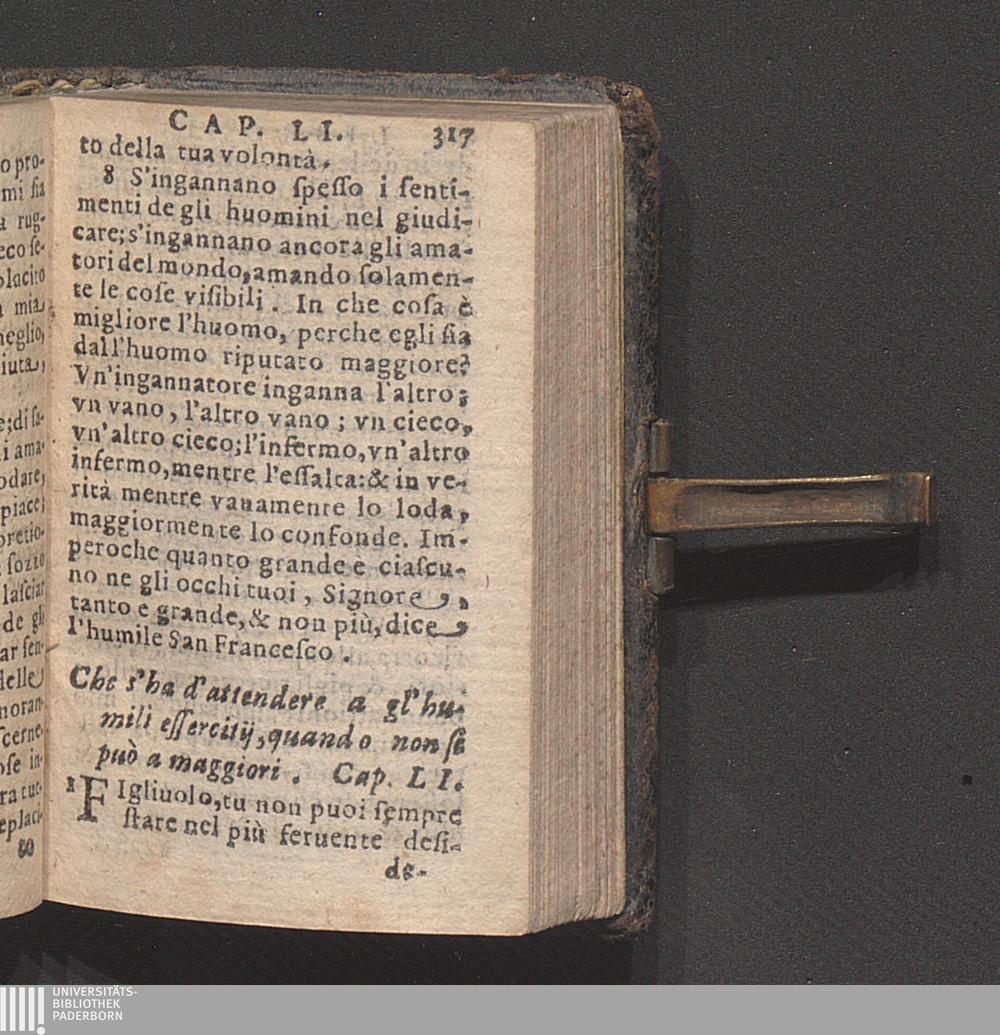 o pro-
mi ſia
a rug-
eco ſe-
placito
a mia
neglio,
iuta,
e; di ſa-
i ama-
odare,
piace;
pretio-
ſozzo
laſciar
de gli
ar ſen-
delle
noran-
ſcerne-
oſe in-
ra tut-
eplaci-
80
CAP. LI. 317
to della tua volontà.
8 S'ingannano ſpeſſo i ſenti-
menti de gli huomini nel giudi-
care; s'ingannano ancora gli ama-
tori del mondo, amando ſolamen-
te le coſe viſibili. In che coſa è
migliore l'huomo, perche egli ſia
dall'huomo riputato maggiore?
Vn'ingannatore inganna l'altro;
vn vano, l'altro vano; vn cieco,
vn'altro cieco; l'infermo, vn'altro
infermo, mentre l'eſſalta: & in ve-
rità mentre vanamente lo loda,
maggiormente lo confonde. Im-
peroche quanto grande e ciaſcu-
no ne gli occhi tuoi, Signore,
tanto e grande, & non più, dice
l'humile San Franceſco.
Che s'ha d'attendere a gl'hu-
mili eſſercitij, quando non ſi
può a maggiori. Cap. LI.
1 FIgliuolo, tu non puoi ſempre
ſtare nel più feruente deſi-
de-
UNIVERSITÄTS-
BIBLIOTHEK
PADERBORN